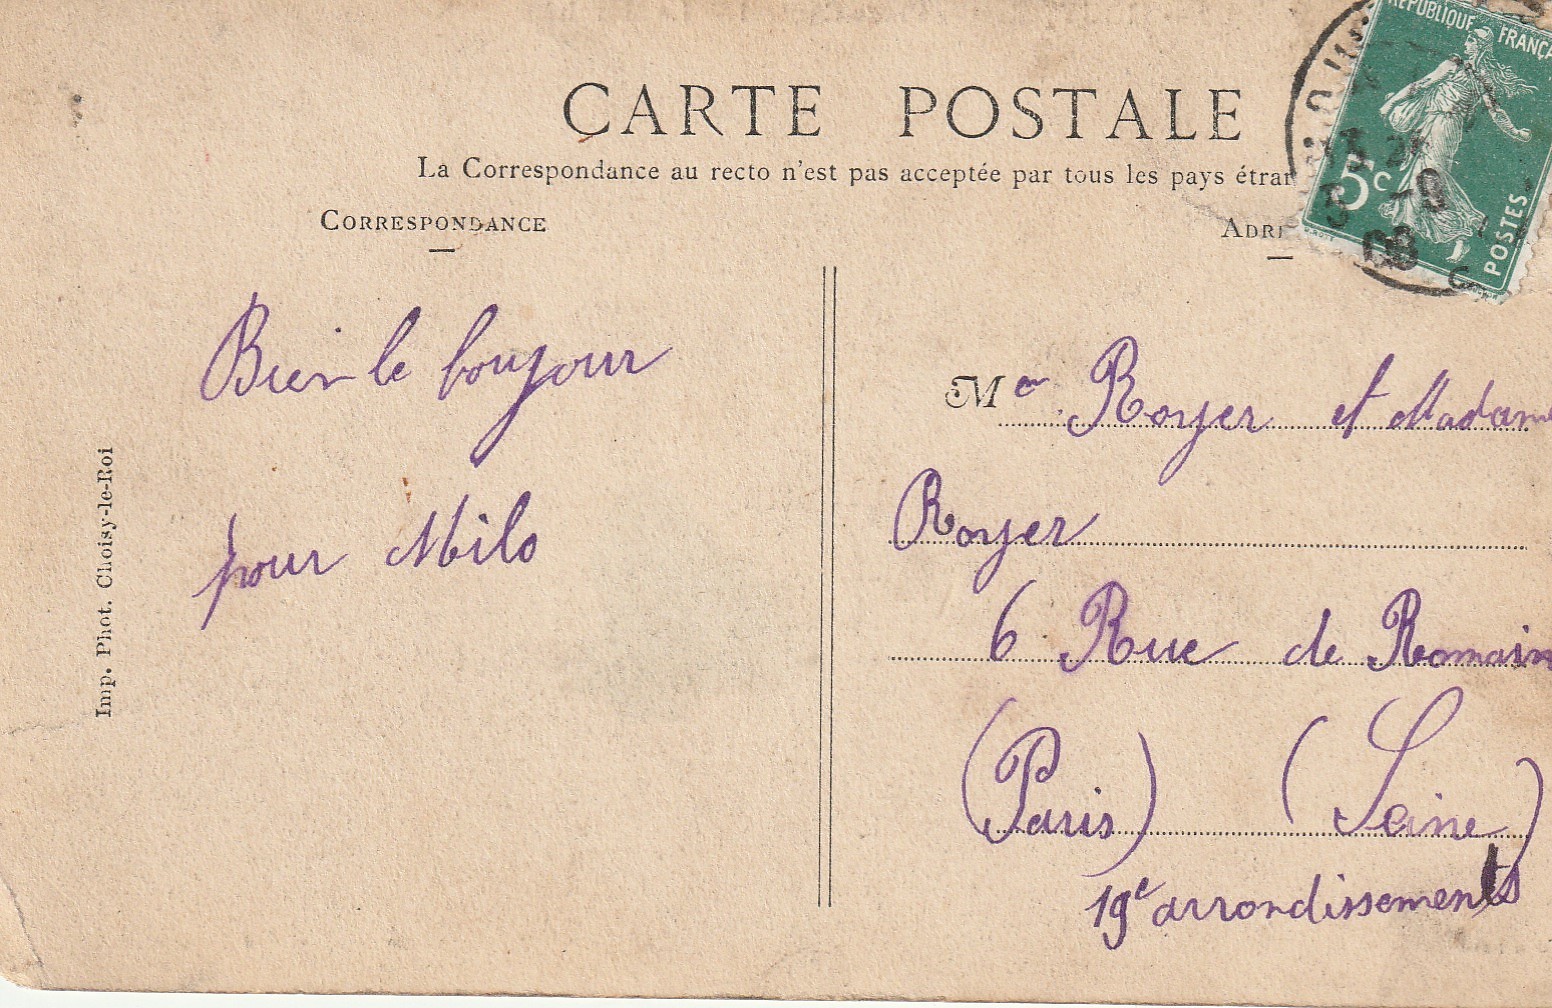 RÉPUBLIQUE FRANÇA
CARTE POSTALE
La Correspondance au recto n'est pas acceptée par tous les pays étran
CORRESPONDANCE
ADRE
5c
POSTES
5 -9
08
Bien le bonjour
pour Milo
Mr Royer et Madame
Royer
6 Rue de Romain
(Paris) (Seine)
19e arrondissements
Imp. Phot. Choisy-le-Roi